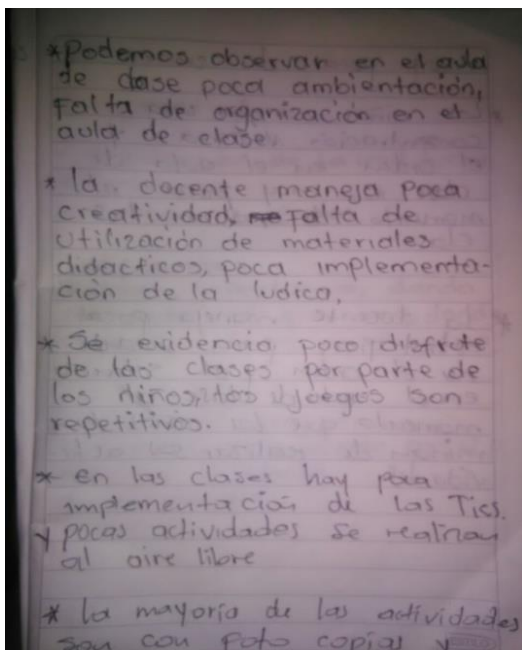 *Podemos observar en el aula
de clase poca ambientación,
Falta de organización en el
aula de clase.
* la docente maneja poca
creatividad, falta de
utilización de materiales
didacticos, poca implementa-
ción de la ludica,
* Se evidencia poco disfrute
de las clases por parte de
los niños, los juegos son
repetitivos.
* en las clases hay poca
implementación de las Tics.
y pocas actividades se realizan
al aire libre
* la mayoria de las actividades
son con foto copias y